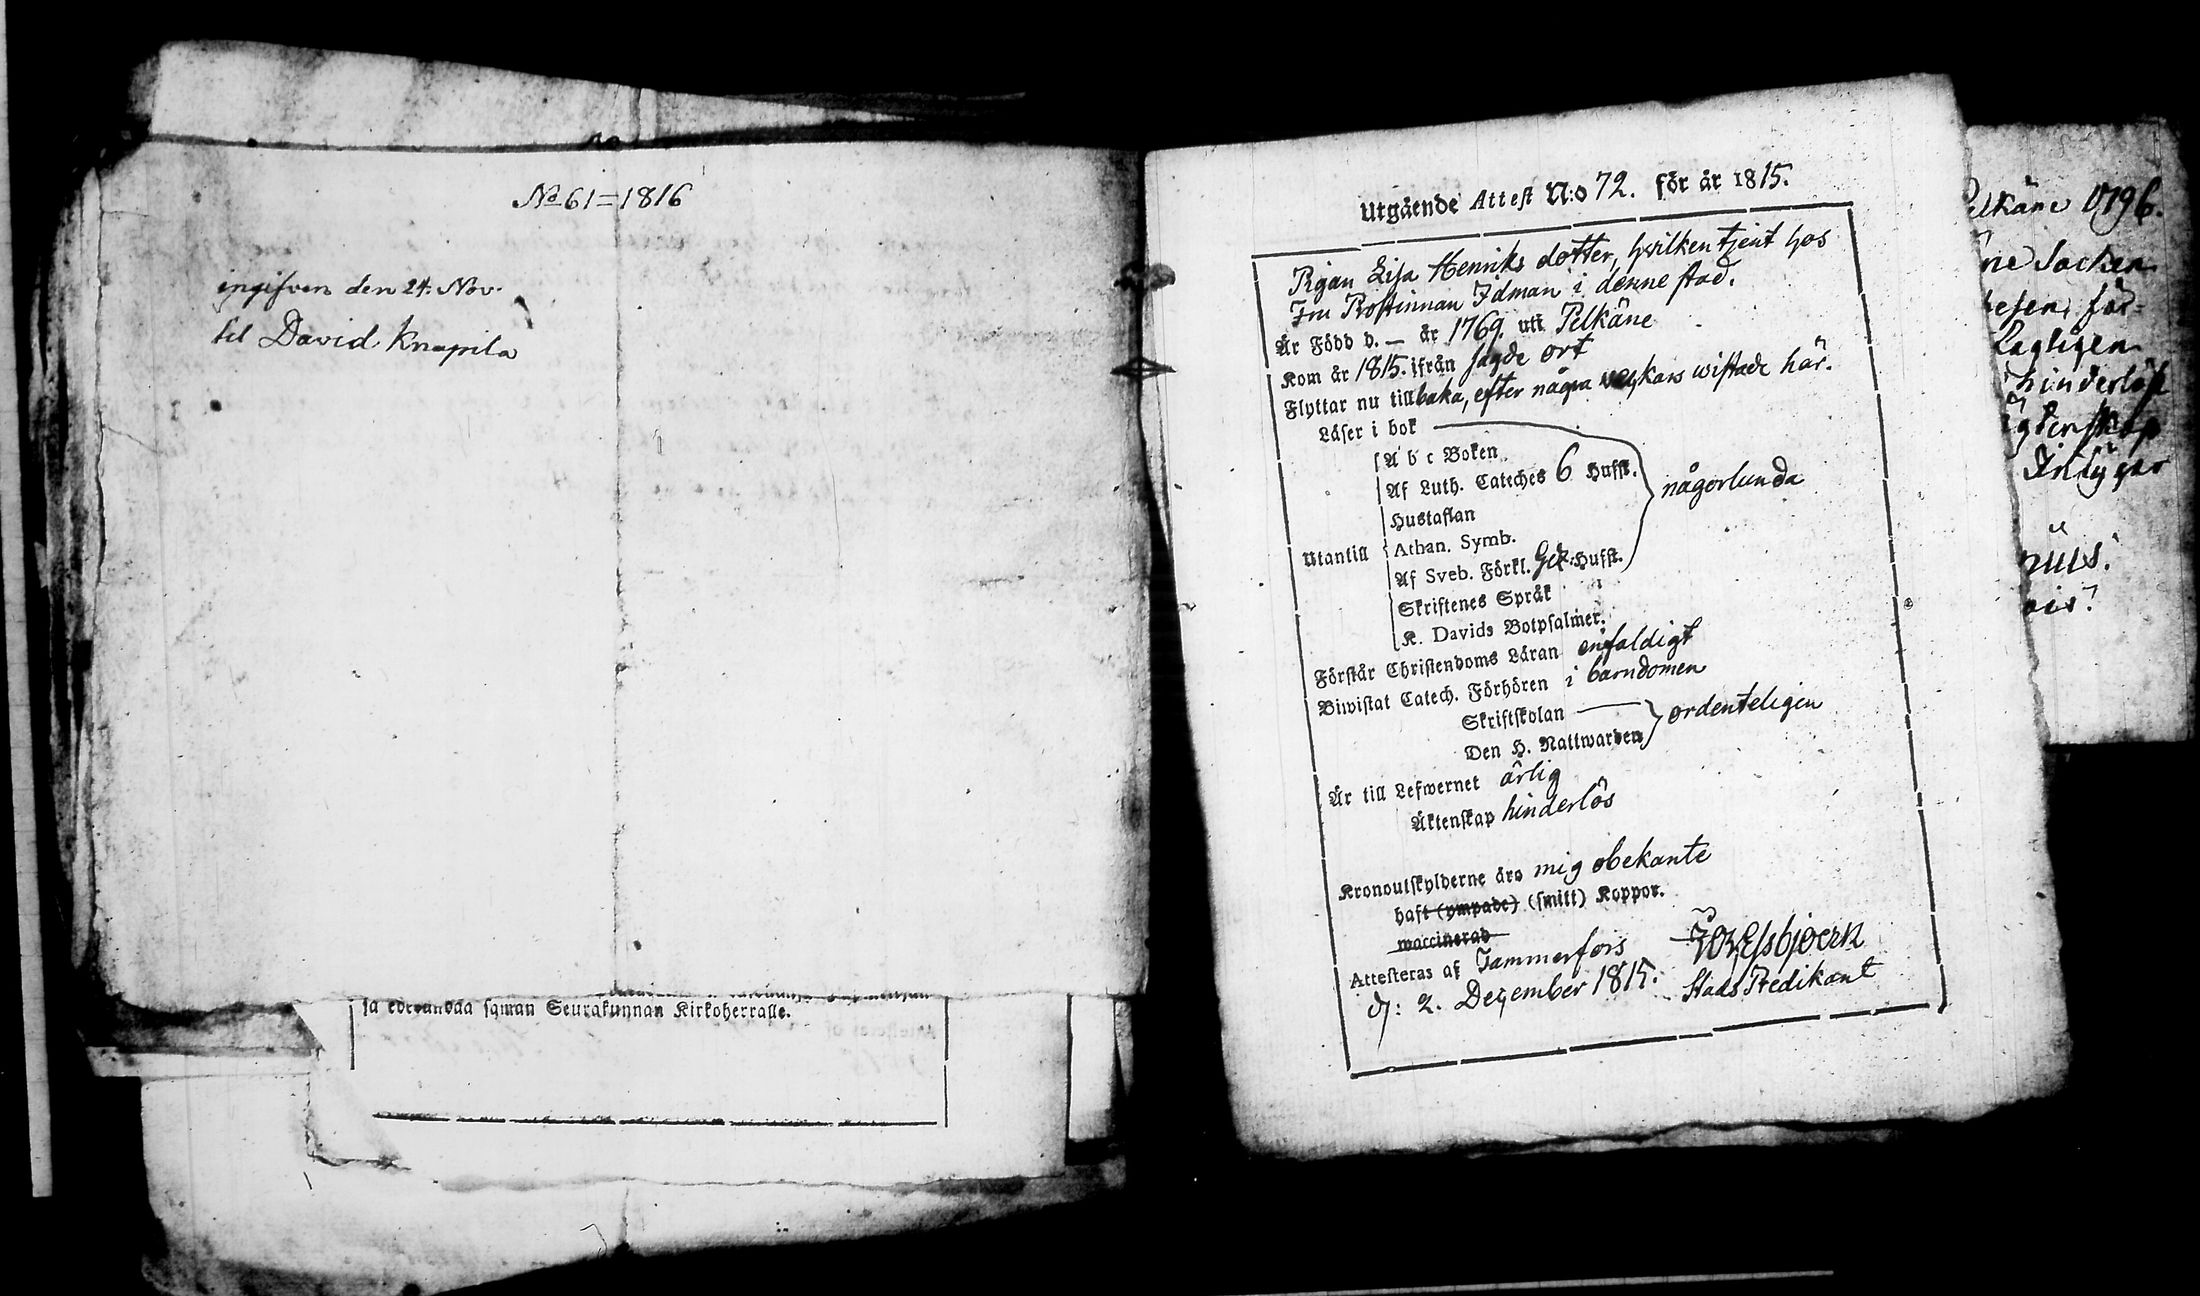 No 61=1816
ingifven den 24. Nov.
til David Knapila
sa edesandaa saman Seurakunnan Kirkoherralle.
Utgående Attest N:o 72. för år 1815.
Pigan Lisa Henriks dotter, hvilken tjent hos
Fru Prostinnan Idman i denne stad.
Är Född d. — år 1769. uti Pelkäne
Kom år 1815. ifrån sagde ort
Flyttar nu tillbaka, efter några veckars wistade här.
Läser i bok
A b c Boken
Af Luth. Cateches 6 Hufst.
Hustaflan
någorlunda
Utantill
Athan. Symb.
Af Sveb. Förkl. Hufst.
Skriftenes Språk
K. Davids Botpsalmer.
Förstår Christendoms Läran enfaldigt
Biwistat Catech. Förhören i barndomen
Skriftskolan
ordenteligen
Den H. Nattwarden
Är till Lefwernet ärlig
Äktenskap hinderlös
Kronoutskylderne äro mig obekante
haft (ympade) (smitt) Koppor.
waccinerad
Attesteras af Tammerfors
d: 2. December 1815. Stads Predikant
elkäne 1796.
ne Socken
Lagligen
hinderlös